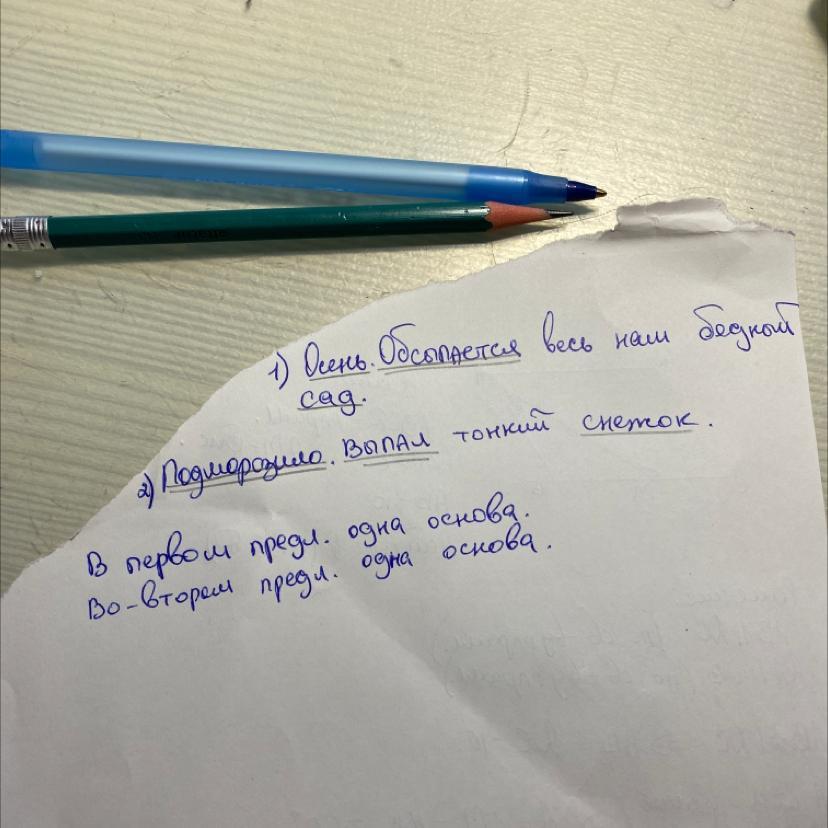 1) Осень. Обсыпается весь наш бедный
сад.
2) Подморозило. Выпал тонкий снежок.
В первом предл. одна основа.
Во-втором предл. одна основа.